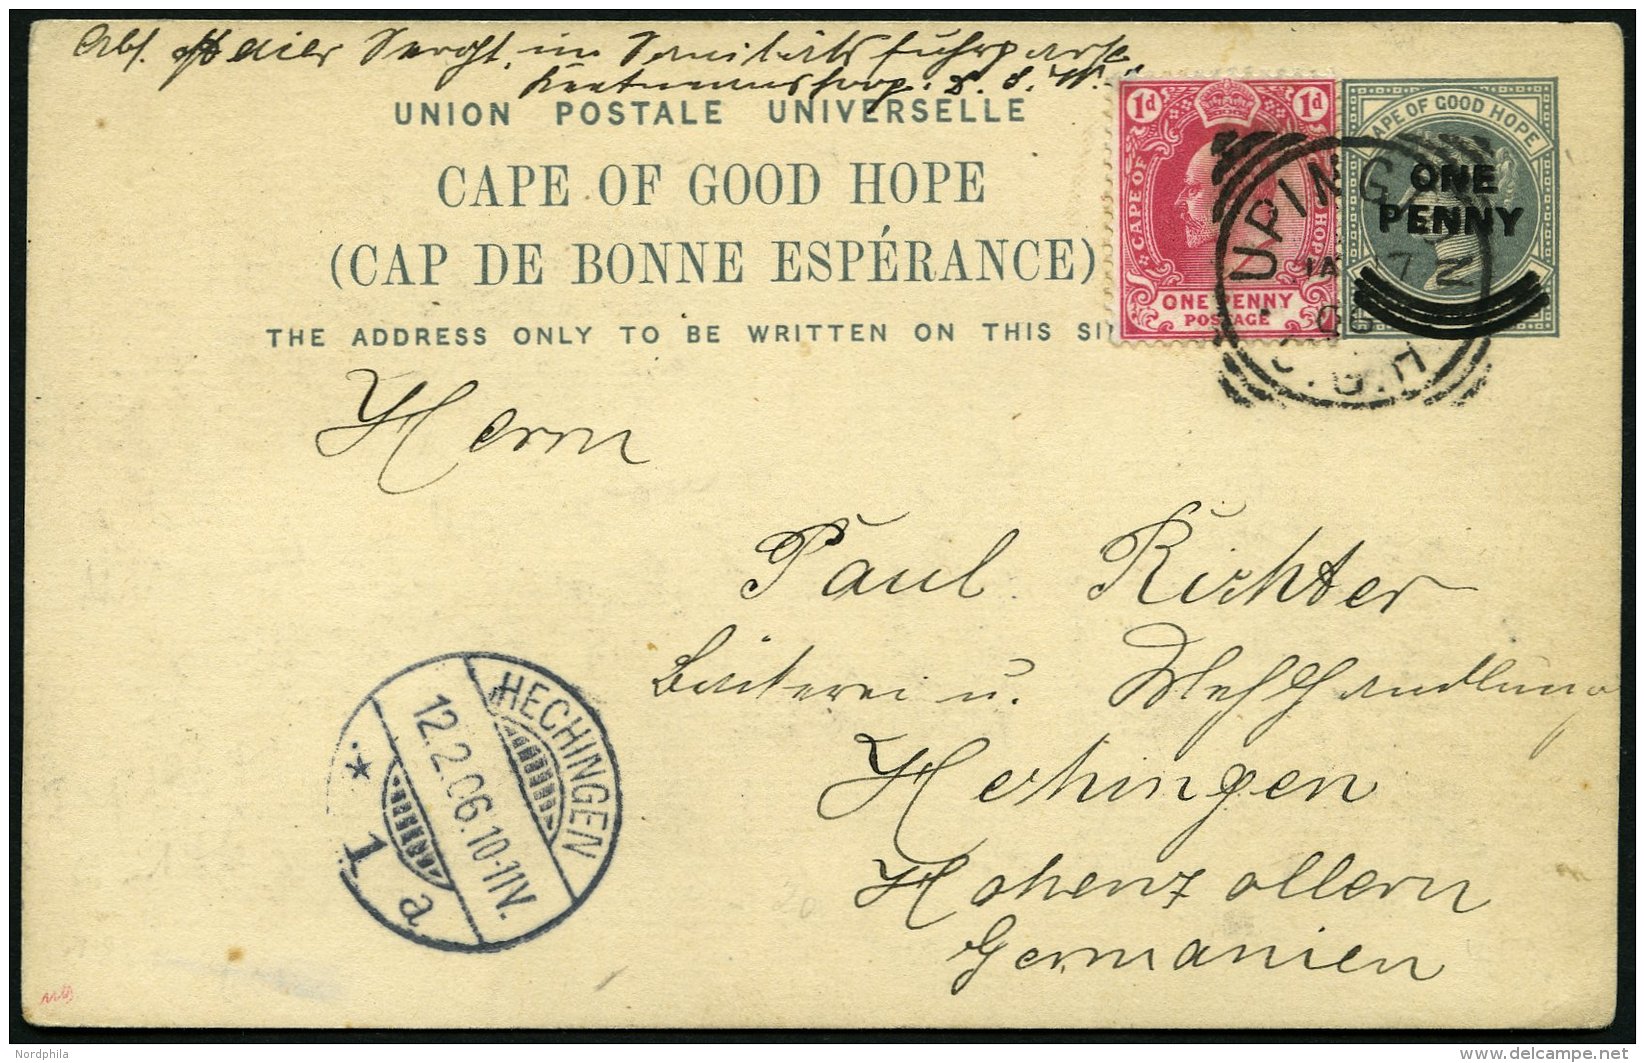 Abs. Maier Sergt. im Sanitätsfuhrpark
Keetmanshoop. D. S. W. A.
UNION POSTALE UNIVERSELLE
CAPE OF GOOD HOPE
(CAP DE BONNE ESPÉRANCE)
THE ADDRESS ONLY TO BE WRITTEN ON THIS SI
1d 1d
CAPE OF HOPE
ONE PENNY
POSTAGE
CAPE OF GOOD HOPE
ONE
PENNY
UPINGTON
JA 17
06
C.G.H
Herrn
Paul Richter
Bäckerei u. Mehlhandlung
Hechingen
Hohenzollern
Germanien
HECHINGEN
12.2.06.10-11V.
* 1 a
Nordphila
delcampe.net